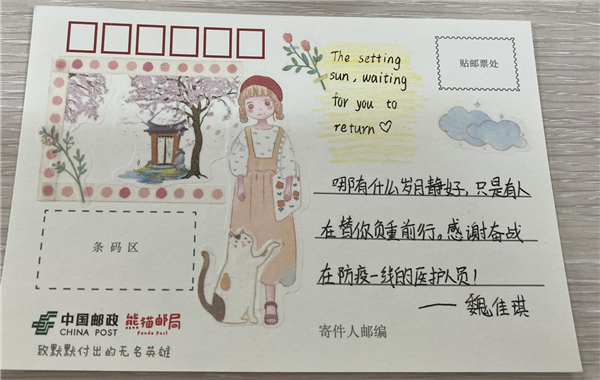 The setting
sun, waiting
for you to
return♡
贴邮票处
哪有什么岁月静好,只是有人
在替你负重前行。感谢奋战
在防疫一线的医护人员!
——魏佳琪
条码区
中国邮政
CHINA POST
熊猫邮局
Panda Post
致默默付出的无名英雄
寄件人邮编